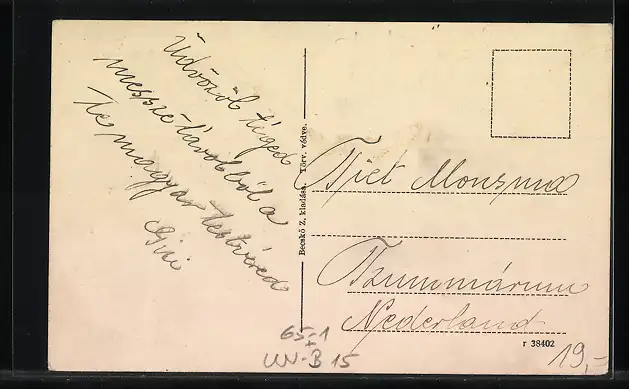 Üdvözöl téged
messze távolból a
Te magyar testvéred
Gini
Becskó Z. kiadása. Törv. védve.
Tjet Monsma
Tzummárum
Nederland
r 38402
65-1
+
UN-B 15
19,-